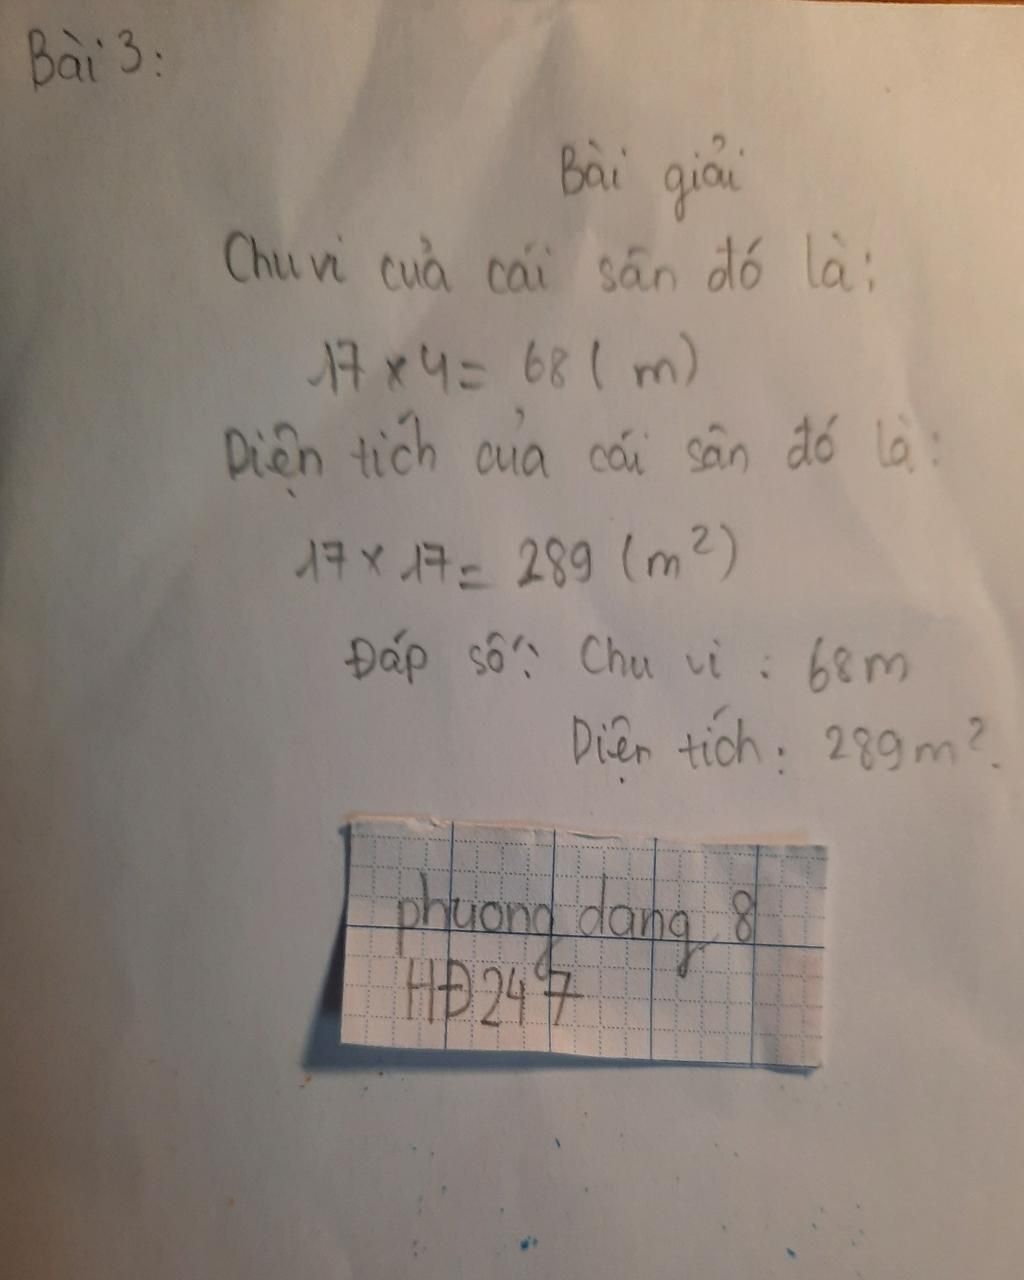 Bài 3:
Bài giải
Chu vi của cái sân đó là:
17 x 4 = 68 ( m)
Diện tích của cái sân đó là:
17 x 17 = 289 (m²)
Đáp số: Chu vi : 68m
Diện tích: 289m².
phuong dang 8
HĐ247